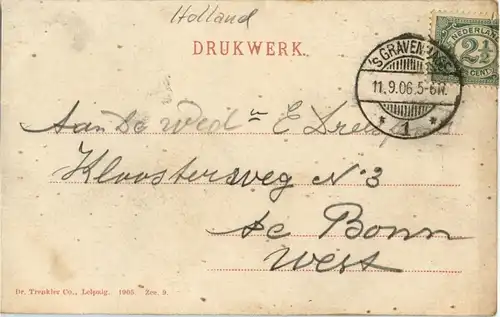 Holland
DRUKWERK.
NEDERLAND
2½
CENT
'SGRAVENHAGE
11.9.06.5-6N.
* 1 *
Aan De Wed n E
Kloostersweg No 3
te Bonn
West
Dr. Trenkler Co., Leipzig. 1905. Zee. 9.